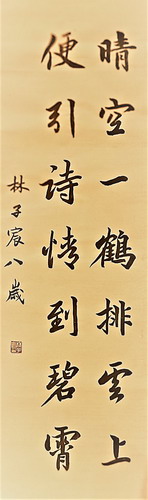 晴空一鶴排雲上
便引詩情到碧霄
林子宸八歲